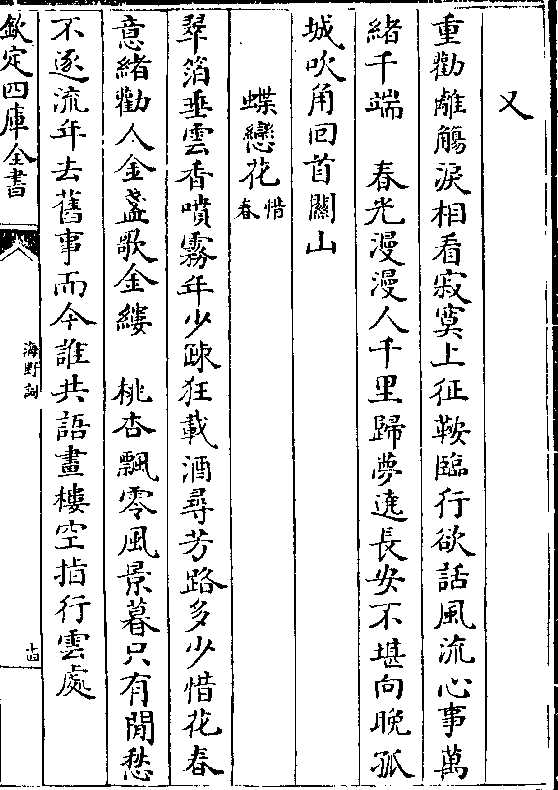 又
重勸離觴淚相看寂寞上征鞍臨行欲話風流心事萬
緒千端　春光漫漫人千里歸夢遶長安不堪向晚孤
城吹角回首關山
蝶戀花惜春
翠箔垂雲香噴霧年少踈狂載酒尋芳路多少惜花春
意緒勸人金盞歌金縷　桃杏飄零風景暮只有閒愁
不逐流年去舊事而今誰共語畫樓空指行雲處
欽定四庫全書
海野詞
十四